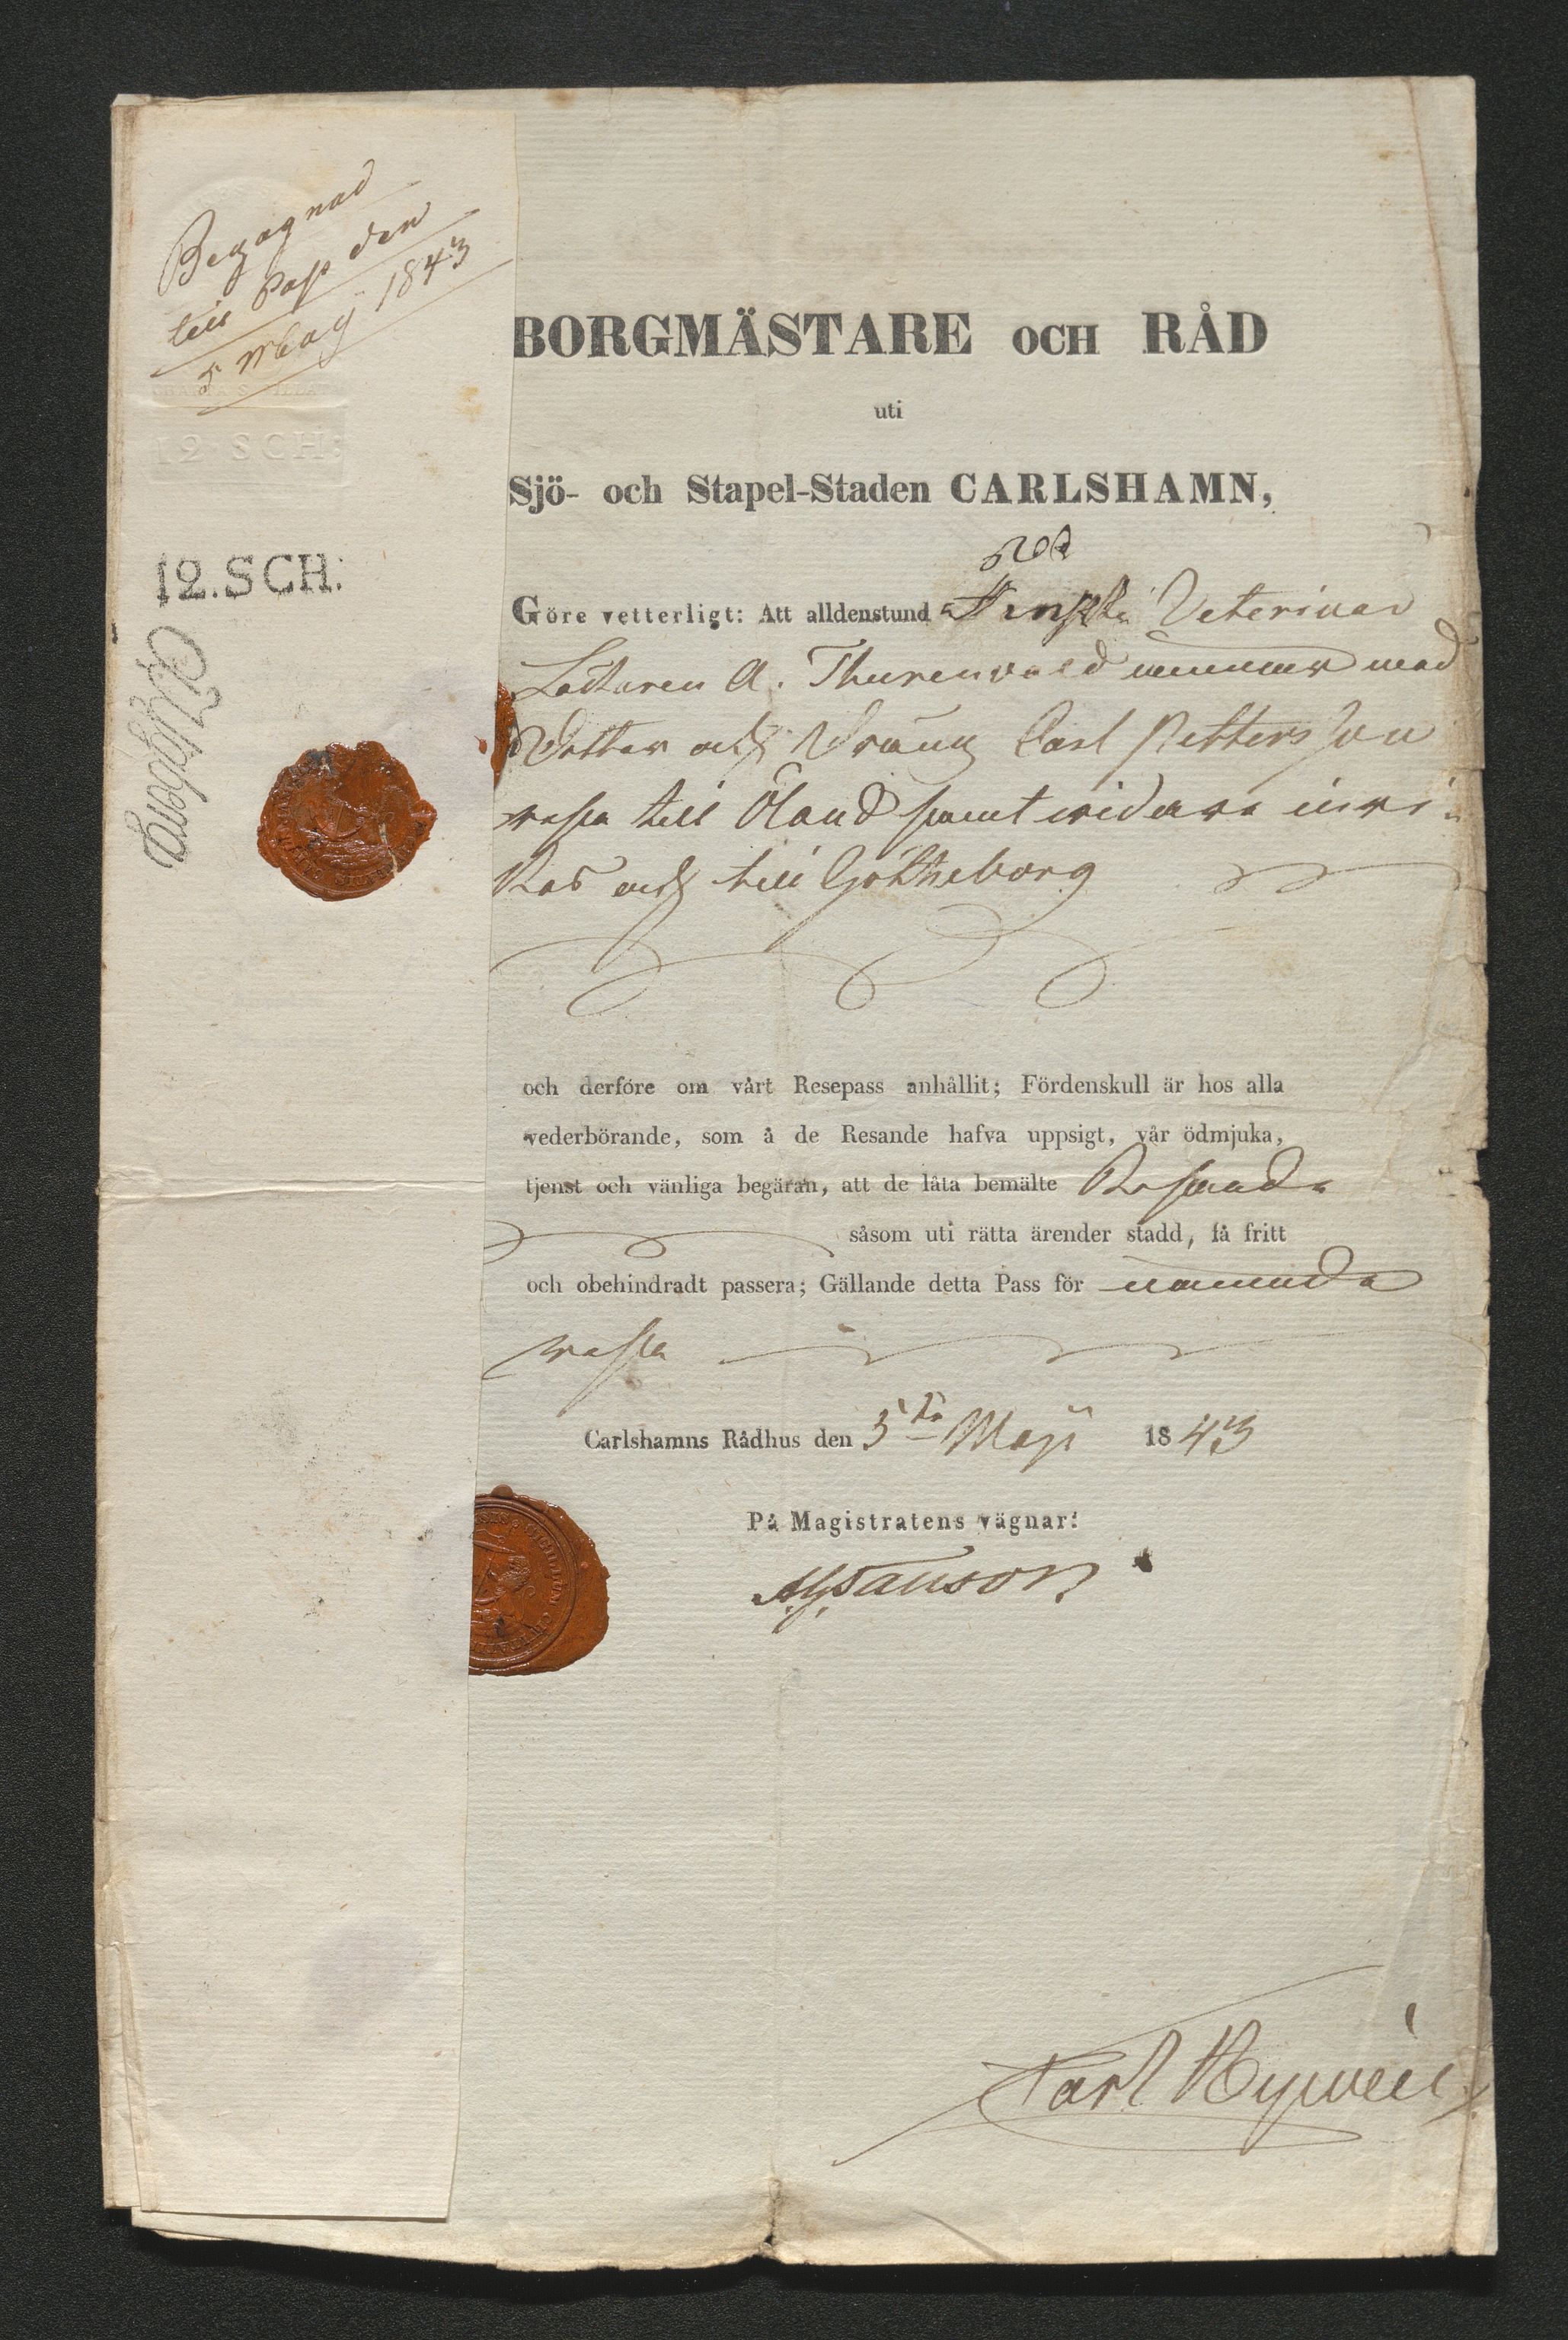 Begagnad
till Pass den
5 Maij 1843
12 SCH:
12.SCH:
BORGMÄSTARE OCH RÅD
uti
Sjö- och Stapel-Staden CARLSHAMN,
Göre vetterligt: Att alldenstund Veterinär
Läkaren A. Thurenwald med
Dotter och Dräng Carl Pettersson
resa till Öland samt vidare inri-
kes och till Götheborg
och derföre om vårt Resepass anhållit; Fördenskull är hos alla
vederbörande, som å de Resande hafva uppsigt, vår ödmjuka,
tjenst och vänliga begäran, att de låta bemälte Resande
såsom uti rätta ärender stadd, få fritt
och obehindradt passera; Gällande detta Pass för nämnda
resa
Carlshamns Rådhus den 5te Maji 1843
På Magistratens vägnar:
Carl